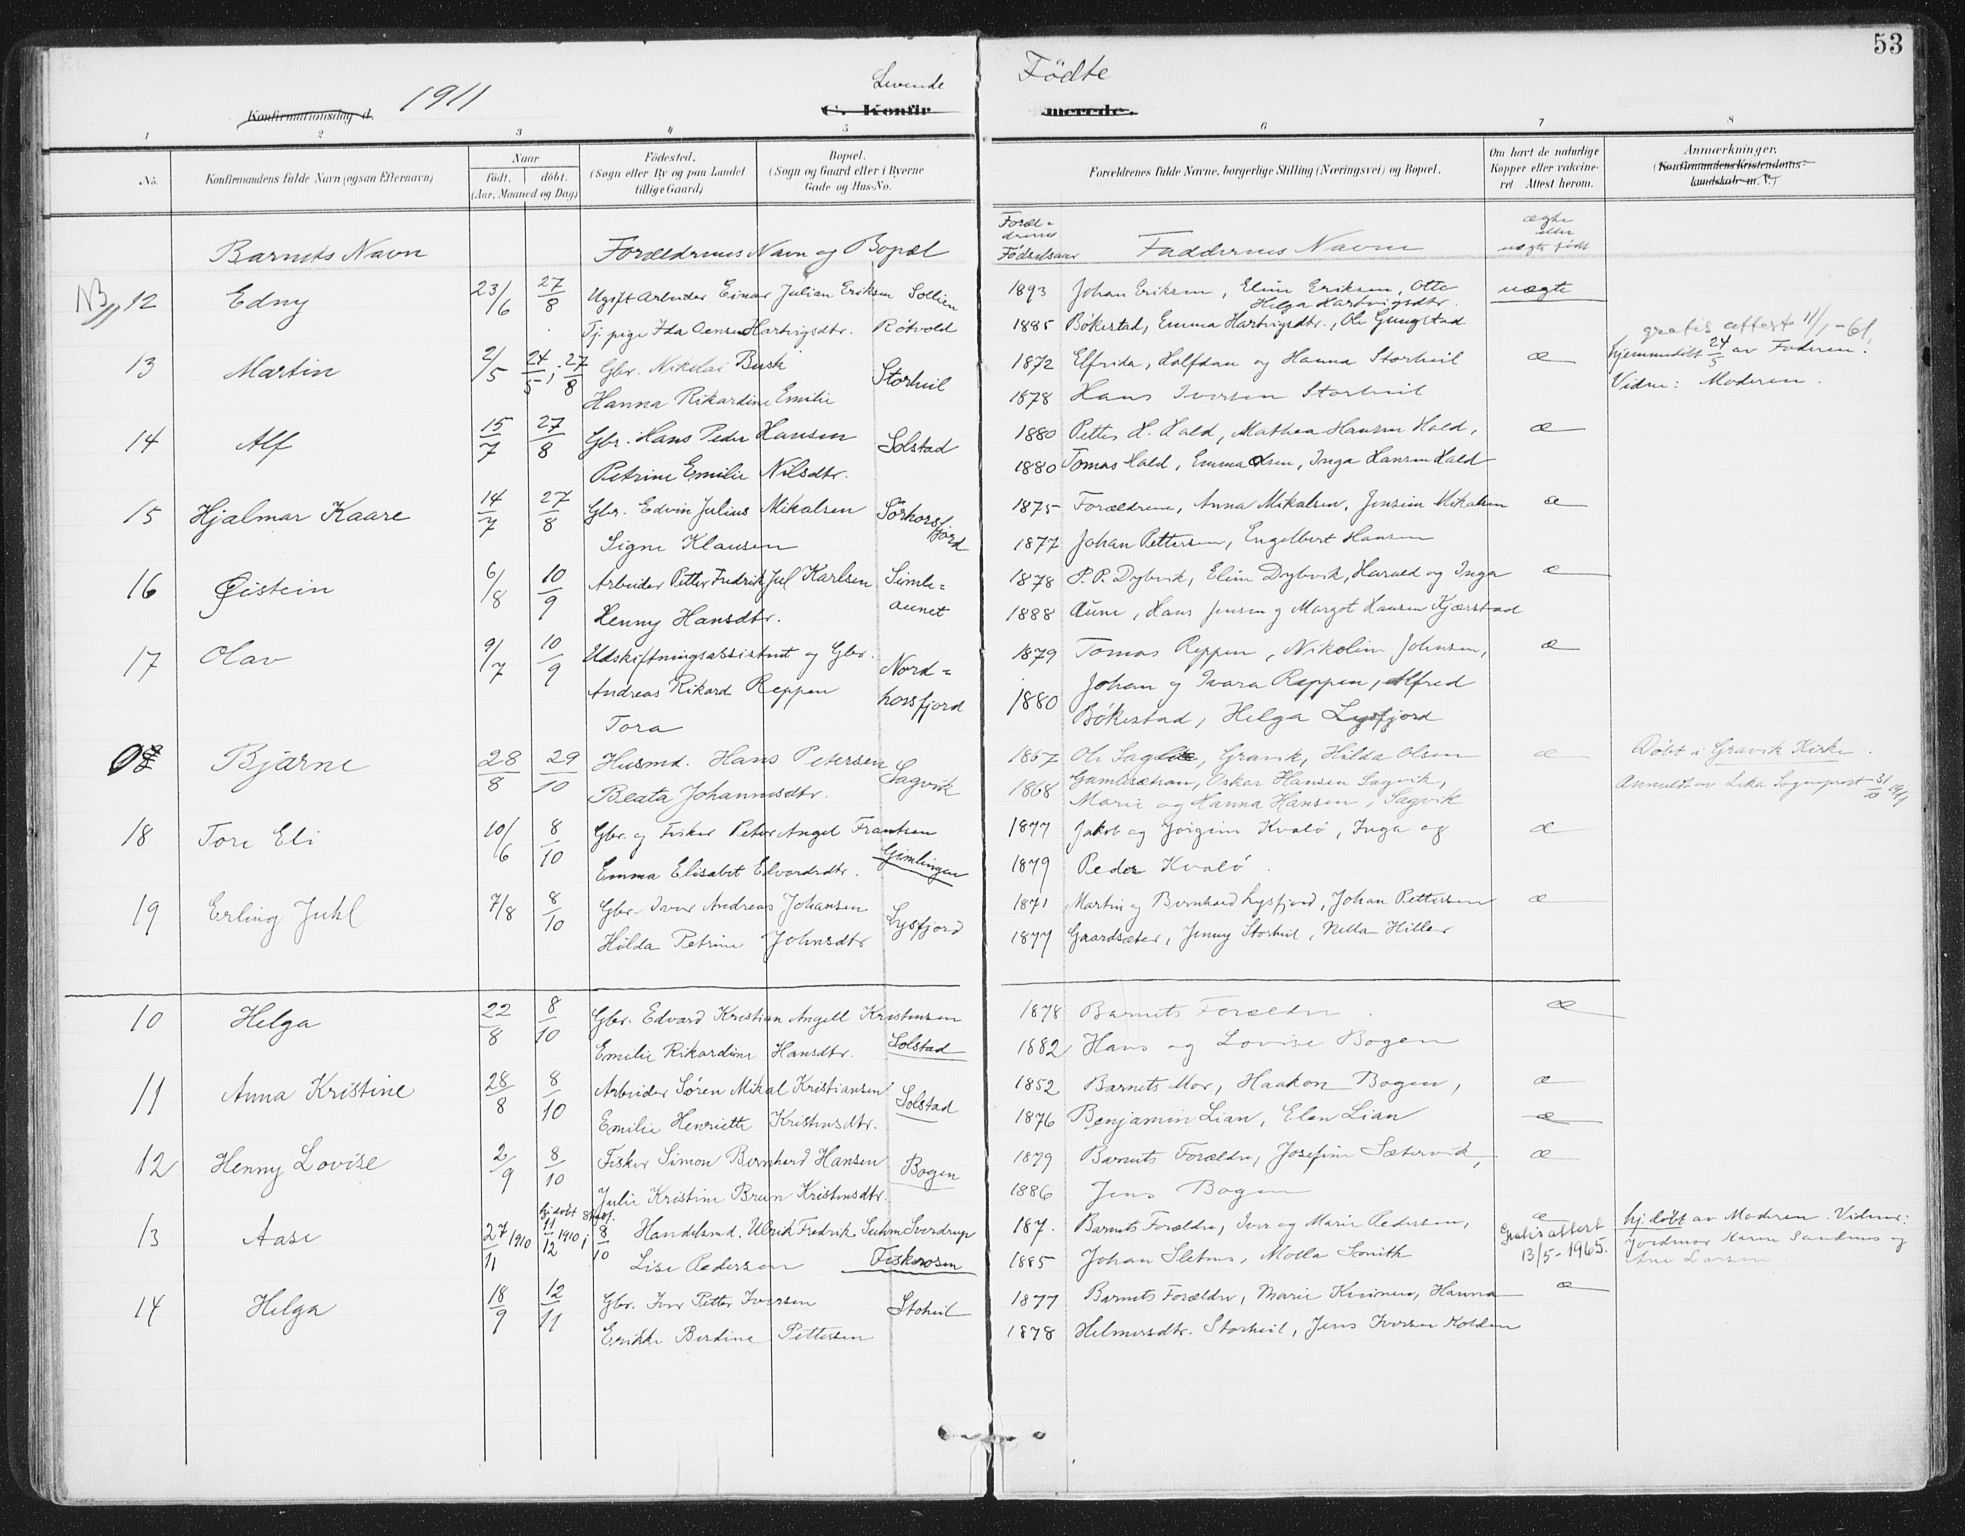 53
1911
Levende Födte
Konfirmationsdag d.
C. Konfirmerede.
1 2 3 4 5 6 7 8
No.
Konfirmandens fulde Navn (ogsaa Efternavn)
Naar
født. døbt.
(Aar, Maaned og Dag)
Fødested.
(Sogn eller By og paa Landet
tillige Gaard)
Bopæl.
(Sogn og Gaard eller i Byerne
Gade og Hus-No.
Forældrenes fulde Navne, borgerlige Stilling (Næringsvei) og Bopæl.
Om havt de naturlige
Kopper eller vakcine-
ret. Attest herom.
Anmærkninger.
(Konfirmandens Kristendoms-
kundskab m. V.)
Barnets Navn
Forældrenes Navn og Bopæl
Foræl-
drenes
Födselsaar
Faddernes Navne
ægte
eller
uægte født
NB 12 Edny 23/6 27/8 Ugift Arbeider Einar Julian Eriksen Sollien 1893 Johan Eriksen, Eline Eriksen, Otto uægte
Helga Hartvigsdtr.
Tj. pige Ida Hartvigsdtr. Rötvold 1885 Bökestad, Emma Hartvigsdtr., Ole Gungstad
gratis attest 11/1-61.
13 Martin 2/5 24/5; 27/8 Gbr. Nikolai Busk Storheil 1872 Elfrida, Halfdan og Hanna Storheil æ hjemmedöbt 24/5 av Faderen.
Hanna Rikardine Emilie 1878 Hans Iversen Storheil Vidne: Moderen.
14 Alf 15/7 27/8 Gbr. Hans Peder Hansen Solstad 1880 Petter H. Hald, Mathea Hansen Hald, æ
Petrine Emilie Nilsdtr. 1880 Tomas Hald, Emma Olsen, Inga Hansen Hald
15 Hjalmar Kaare 14/7 27/8 Gbr. Edvin Julius Mikalsen Sörhorsfjord 1875 Forældrene, Anna Mikalsen, Jensine Mikalsen æ
Signe Klausen 1877 Johan Pettersen, Engelbert Hansen
16 Øistein 6/8 10/9 Arbeider Petter Fredrik Jul Karlsen Simle= 1878 P. P. Dybvik, Eline Dybvik, Harald og Inga æ
Henny Hansdtr. aunet 1888 Aune, Hans Jensen og Margot Hansen Kjærstad
17 Olav 9/7 10/9 Udskiftningsassistent og Gbr. Nord= 1879 Tomas Reppen, Nikoline Johnsen, æ
Andreas Rikard Reppen horsfjord 1880 Johan og Ivara Reppen, Alfred
Tora Bökestad, Helga Lysfjord
Bjarne 28/8 29/10 Husmd. Hans Petersen Sagvik 1867 Ole Gravik, Hilda Olsen æ Döbt i Gravik Kirke.
Beata Johannesdtr. 1868 Oskar Hansen Sagvik, Anmeldt av Leka Sogneprest 31/10 1911
Marie og Hanna Hansen, Sagvik
18 Tore Eli 10/6 8/10 Gbr. og Fisker Peter Angel Frantsen Gimlingen 1877 Jakob og Jörgine Kvalö, Inga og æ
Emma Elisabet Edvardsdtr. 1879 Peder Kvalö.
19 Erling Juhl 7/8 8/10 Gbr. Iver Andreas Johansen Lysfjord 1871 Martin og Bernhard Lysfjord, Johan Pettersen æ
Hilda Petrine Johnsdtr 1877 Gaardsæter, Jenny Storheil, Nella Hiller
10 Helga 22/8 8/10 Gbr. Edvard Kristian Angell Kristensen 1878 Barnets Forældre. æ
Emilie Rikardine Hansdtr. Solstad 1882 Hans og Lovise Bogen
11 Anna Kristine 28/8 8/10 Arbeider Søren Mikal Kristiansen Solstad 1852 Barnets Mor, Haakon Bogen, æ
Emilie Henriette Kristensdtr. 1876 Benjamin Lian, Elen Lian æ
12 Henny Lovise 2/9 8/10 Fisker Simon Bernhard Hansen Bogen 1879 Barnets Forældre, Josefine Sætervik, æ
Julie Kristine Brun Kristensdtr. 1886 Jens Bogen
13 Aase 27/11 1910 hj. döbt 11/12 1910 i 8/10 Handelsmd. Ulrik Fredrik Suhm Sverdrup 187. Barnets Forældre, Iver og Marie Pedersen, æ hj. döbt av Moderen. Vidner:
Lise Pedersen Fiskerosen 1885 Johan Sletnes, Molla Smith Gratis attest 13/5-1965. Jordmor Karen Sandnes og
Ane Larsen
14 Helga 18/9 12/11 Gbr. Iver Petter Iversen Stoheil 1877 Barnets Forældre, Marie Hanna æ
Erikke Berdine Pettersen 1878 Helmersdtr. Storheil, Jens Iversen Kolden